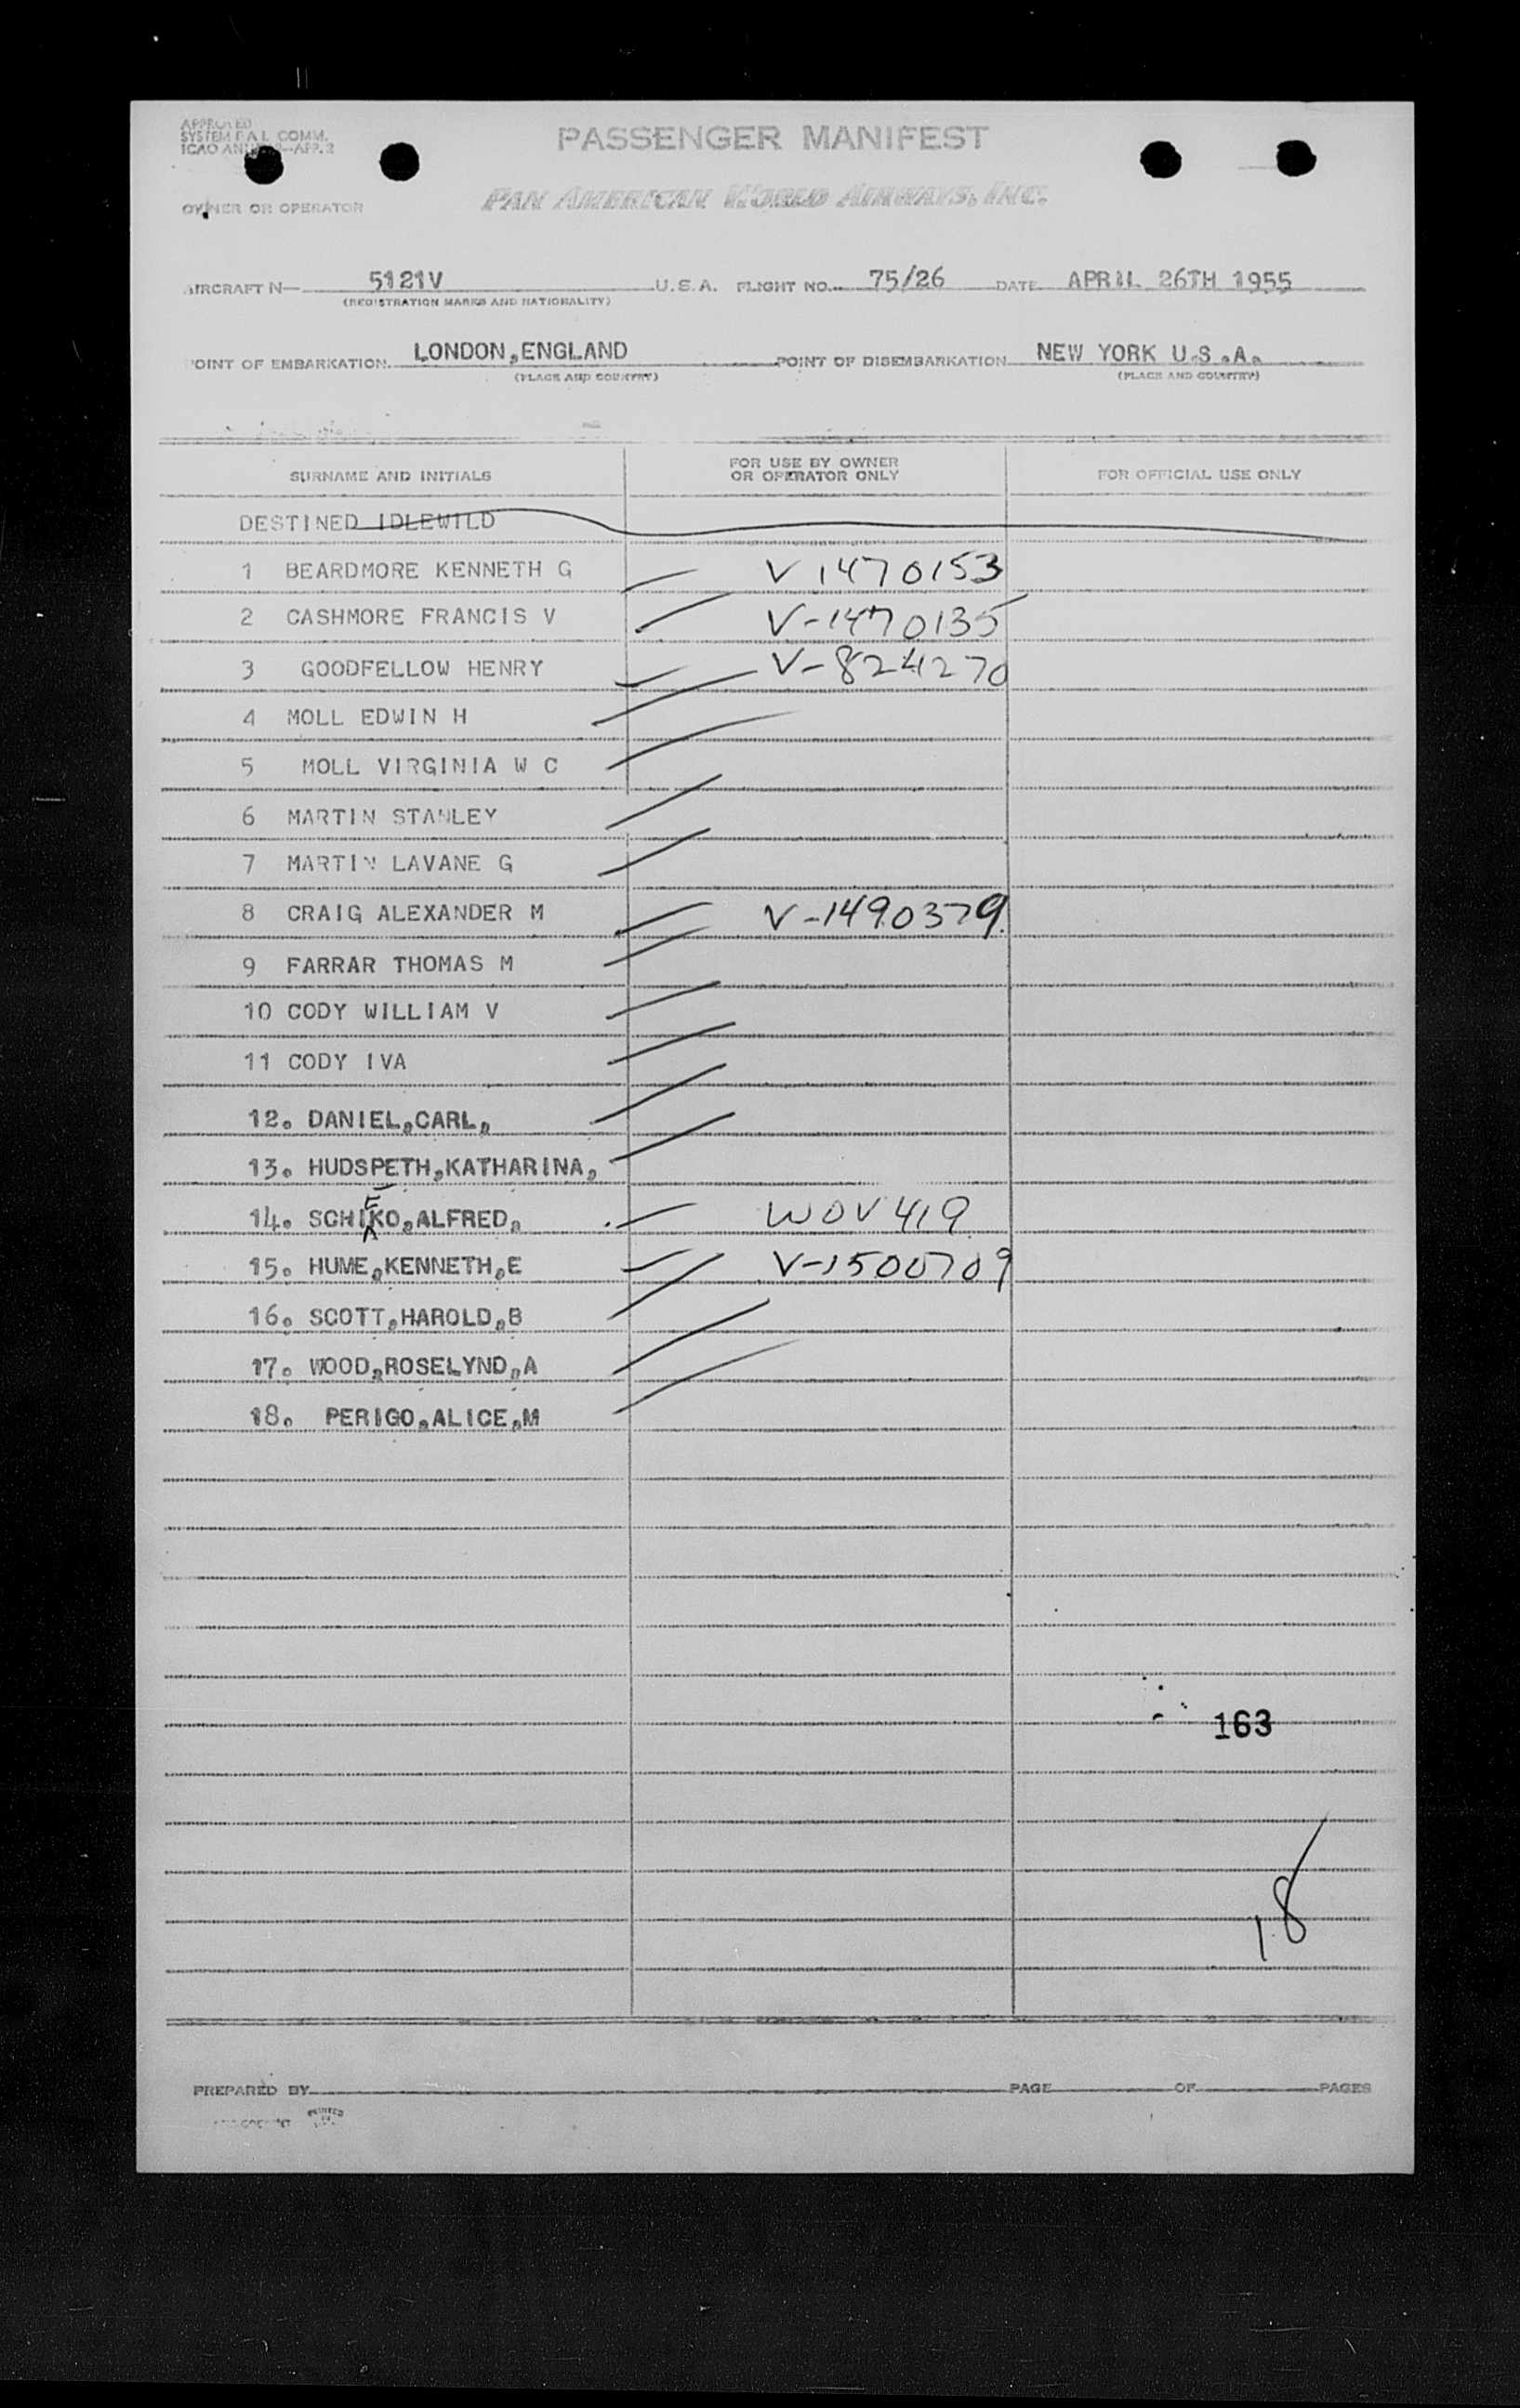 APPROVED
SYSTEM BAL COMM.
ICAO ANNEX 9-APP. 2
PASSENGER MANIFEST
OWNER OR OPERATOR
PAN AMERICAN WORLD AIRWAYS, INC.
AIRCRAFT N— 5121V U.S.A. FLIGHT NO. 75/26 DATE APRIL 26TH 1955
(REGISTRATION MARKS AND NATIONALITY)
POINT OF EMBARKATION LONDON,ENGLAND POINT OF DISEMBARKATION NEW YORK U.S.A.
(PLACE AND COUNTRY) (PLACE AND COUNTRY)
SURNAME AND INITIALS FOR USE BY OWNER OR OPERATOR ONLY FOR OFFICIAL USE ONLY
DESTINED IDLEWILD
1 BEARDMORE KENNETH G V 1470153
2 CASHMORE FRANCIS V V-1470135
3 GOODFELLOW HENRY V-824270
4 MOLL EDWIN H
5 MOLL VIRGINIA W C
6 MARTIN STANLEY
7 MARTIN LAVANE G
8 CRAIG ALEXANDER M V-1490379
9 FARRAR THOMAS M
10 CODY WILLIAM V
11 CODY IVA
12. DANIEL,CARL,
13. HUDSPETH,KATHARINA,
14. SCHIEKO,ALFRED, WOV419
15. HUME,KENNETH,E V-1500709
16. SCOTT,HAROLD,B
17. WOOD,ROSELYND,A
18. PERIGO,ALICE,M
163
18
PREPARED BY PAGE OF PAGES
PRINTED IN